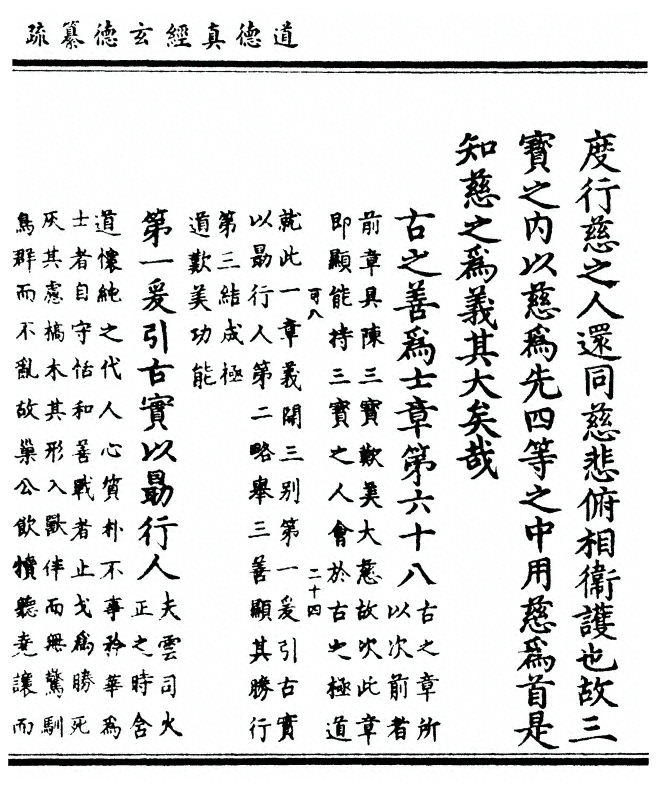 道德真經玄德纂疏
度行慈之人還同慈悲俯相衛護也故三
寶之內以慈爲先四等之中用慈爲首是
知慈之爲義其大矣哉
古之善爲士章第六十八
古之章所
以次前者
前章具陳三寶歎美大慈故次此章
即顯能持三寶之人會於古之極道
可八
二十四
就此一章義開三別第一爰引古實
以勗行人第二略舉三善顯其勝行
第三結成極
道歎美功能
第一爰引古實以勗行人
夫雲司火
正之時含
道懷純之代人心質朴不事矜華爲
士者自守恬和善戰者止戈爲勝死
灰其慮槁木其形入獸伴而無驚馴
鳥群而不亂故巢公飲犢聽堯讓而